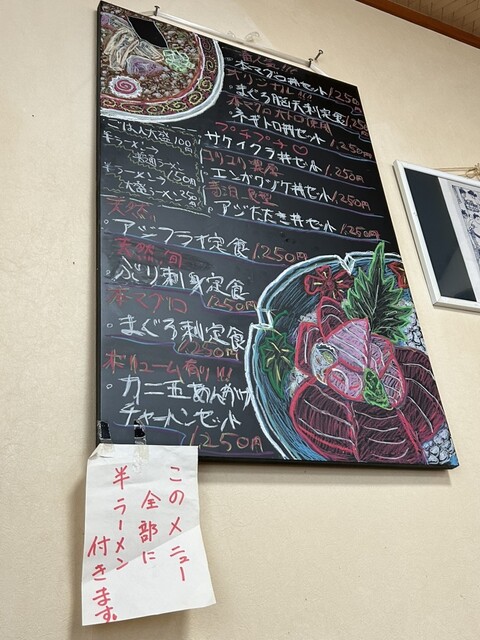 一番人気!!!
・本マグロ丼セット 1,250円
オリジナル!!!
・まぐろ脳天刺定食 1,250円
本マグロ大トロ使用
・ネギトロ丼セット 1,250円
プチプチ♡
サケイクラ丼セット 1,250円
コリコリ濃厚
・エンガワヅケ丼セット 1,250円
・アジたたき丼セット 1,250円
・ごはん大盛100円
半ラーメン→
普通ラーメン 150円
半ラーメン→
大盛ラーメン250円
天然
・アジフライ定食 1,250円
天然 旬
・ぶり刺身定食 1,250円
本マグロ
・まぐろ刺定食 1,250円
ボリューム有り!!!
・カニ玉あんかけ
チャーハンセット
1,250円
このメニュー
全部に
半ラーメン
付きます。